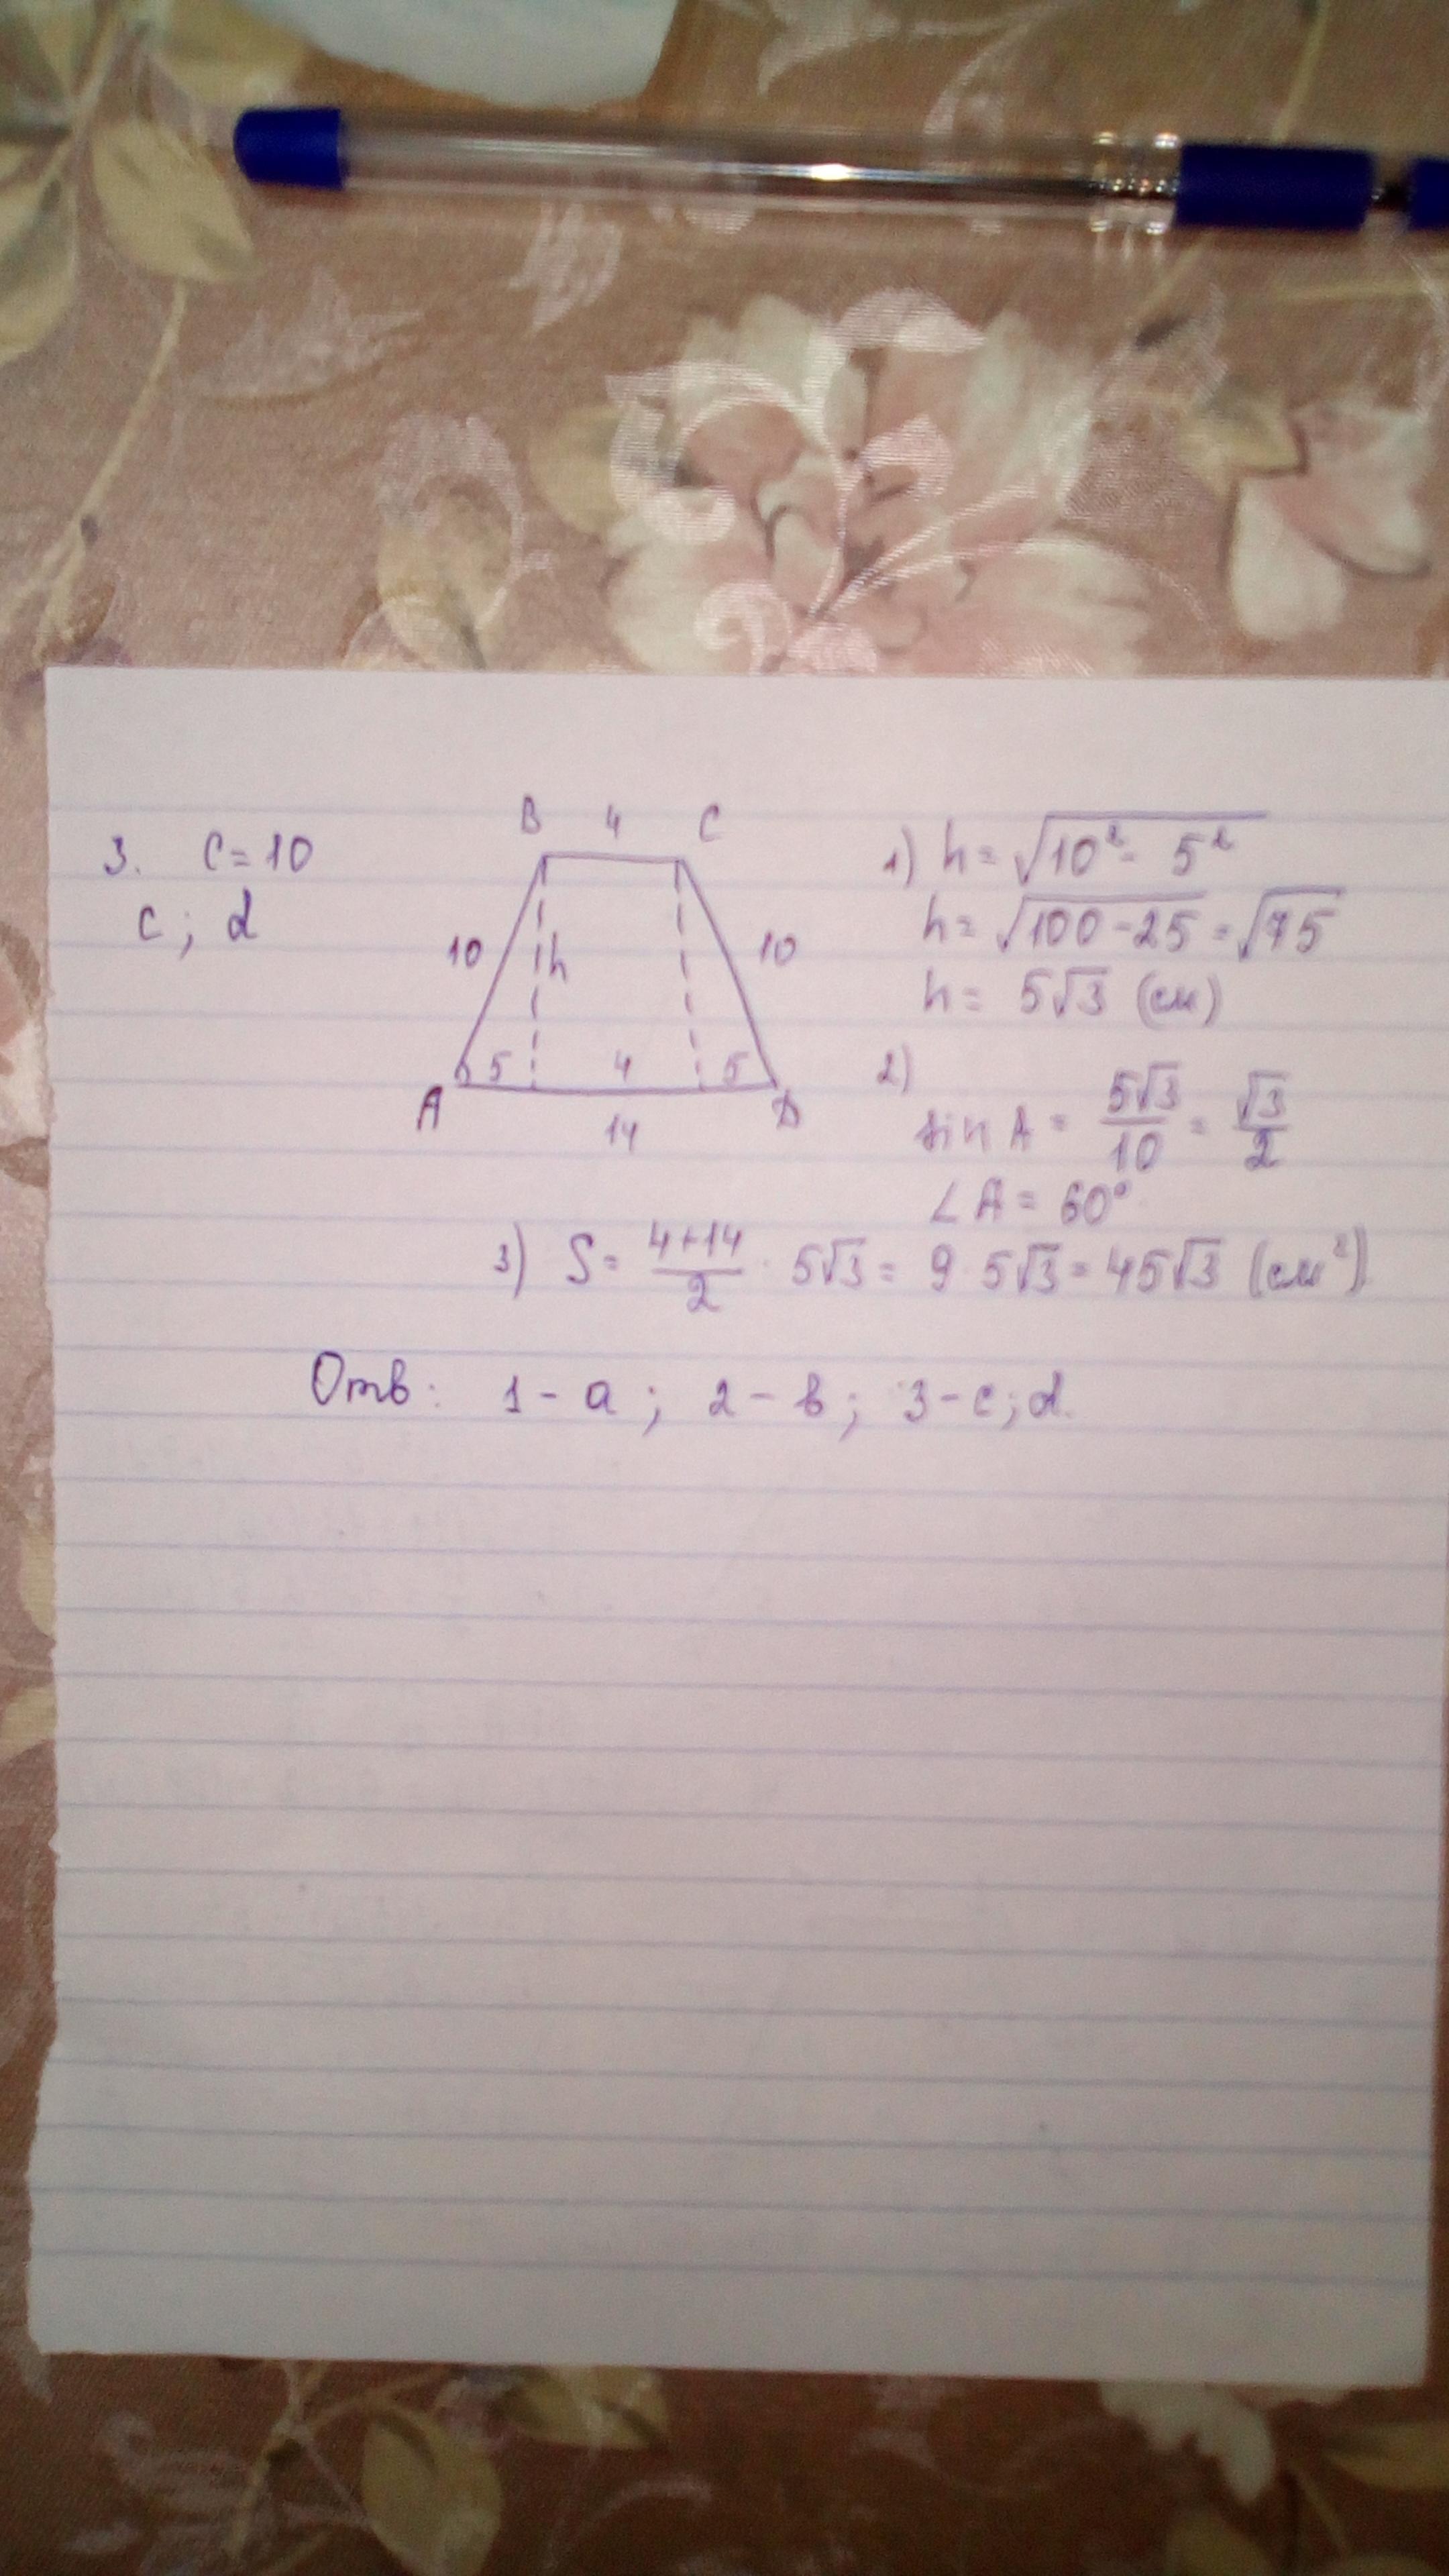 3. C = 10
c; d
B 4 C
10 h 10
5 4 5
A D
14
1) h = √10² - 5²
h = √100 - 25 = √75
h = 5√3 (см)
2)
sin A = 5√3/10 = √3/2
∠A = 60°
3) S = 4+14/2 · 5√3 = 9 · 5√3 = 45√3 (см²)
Отв: 1 - a; 2 - b; 3 - c; d.